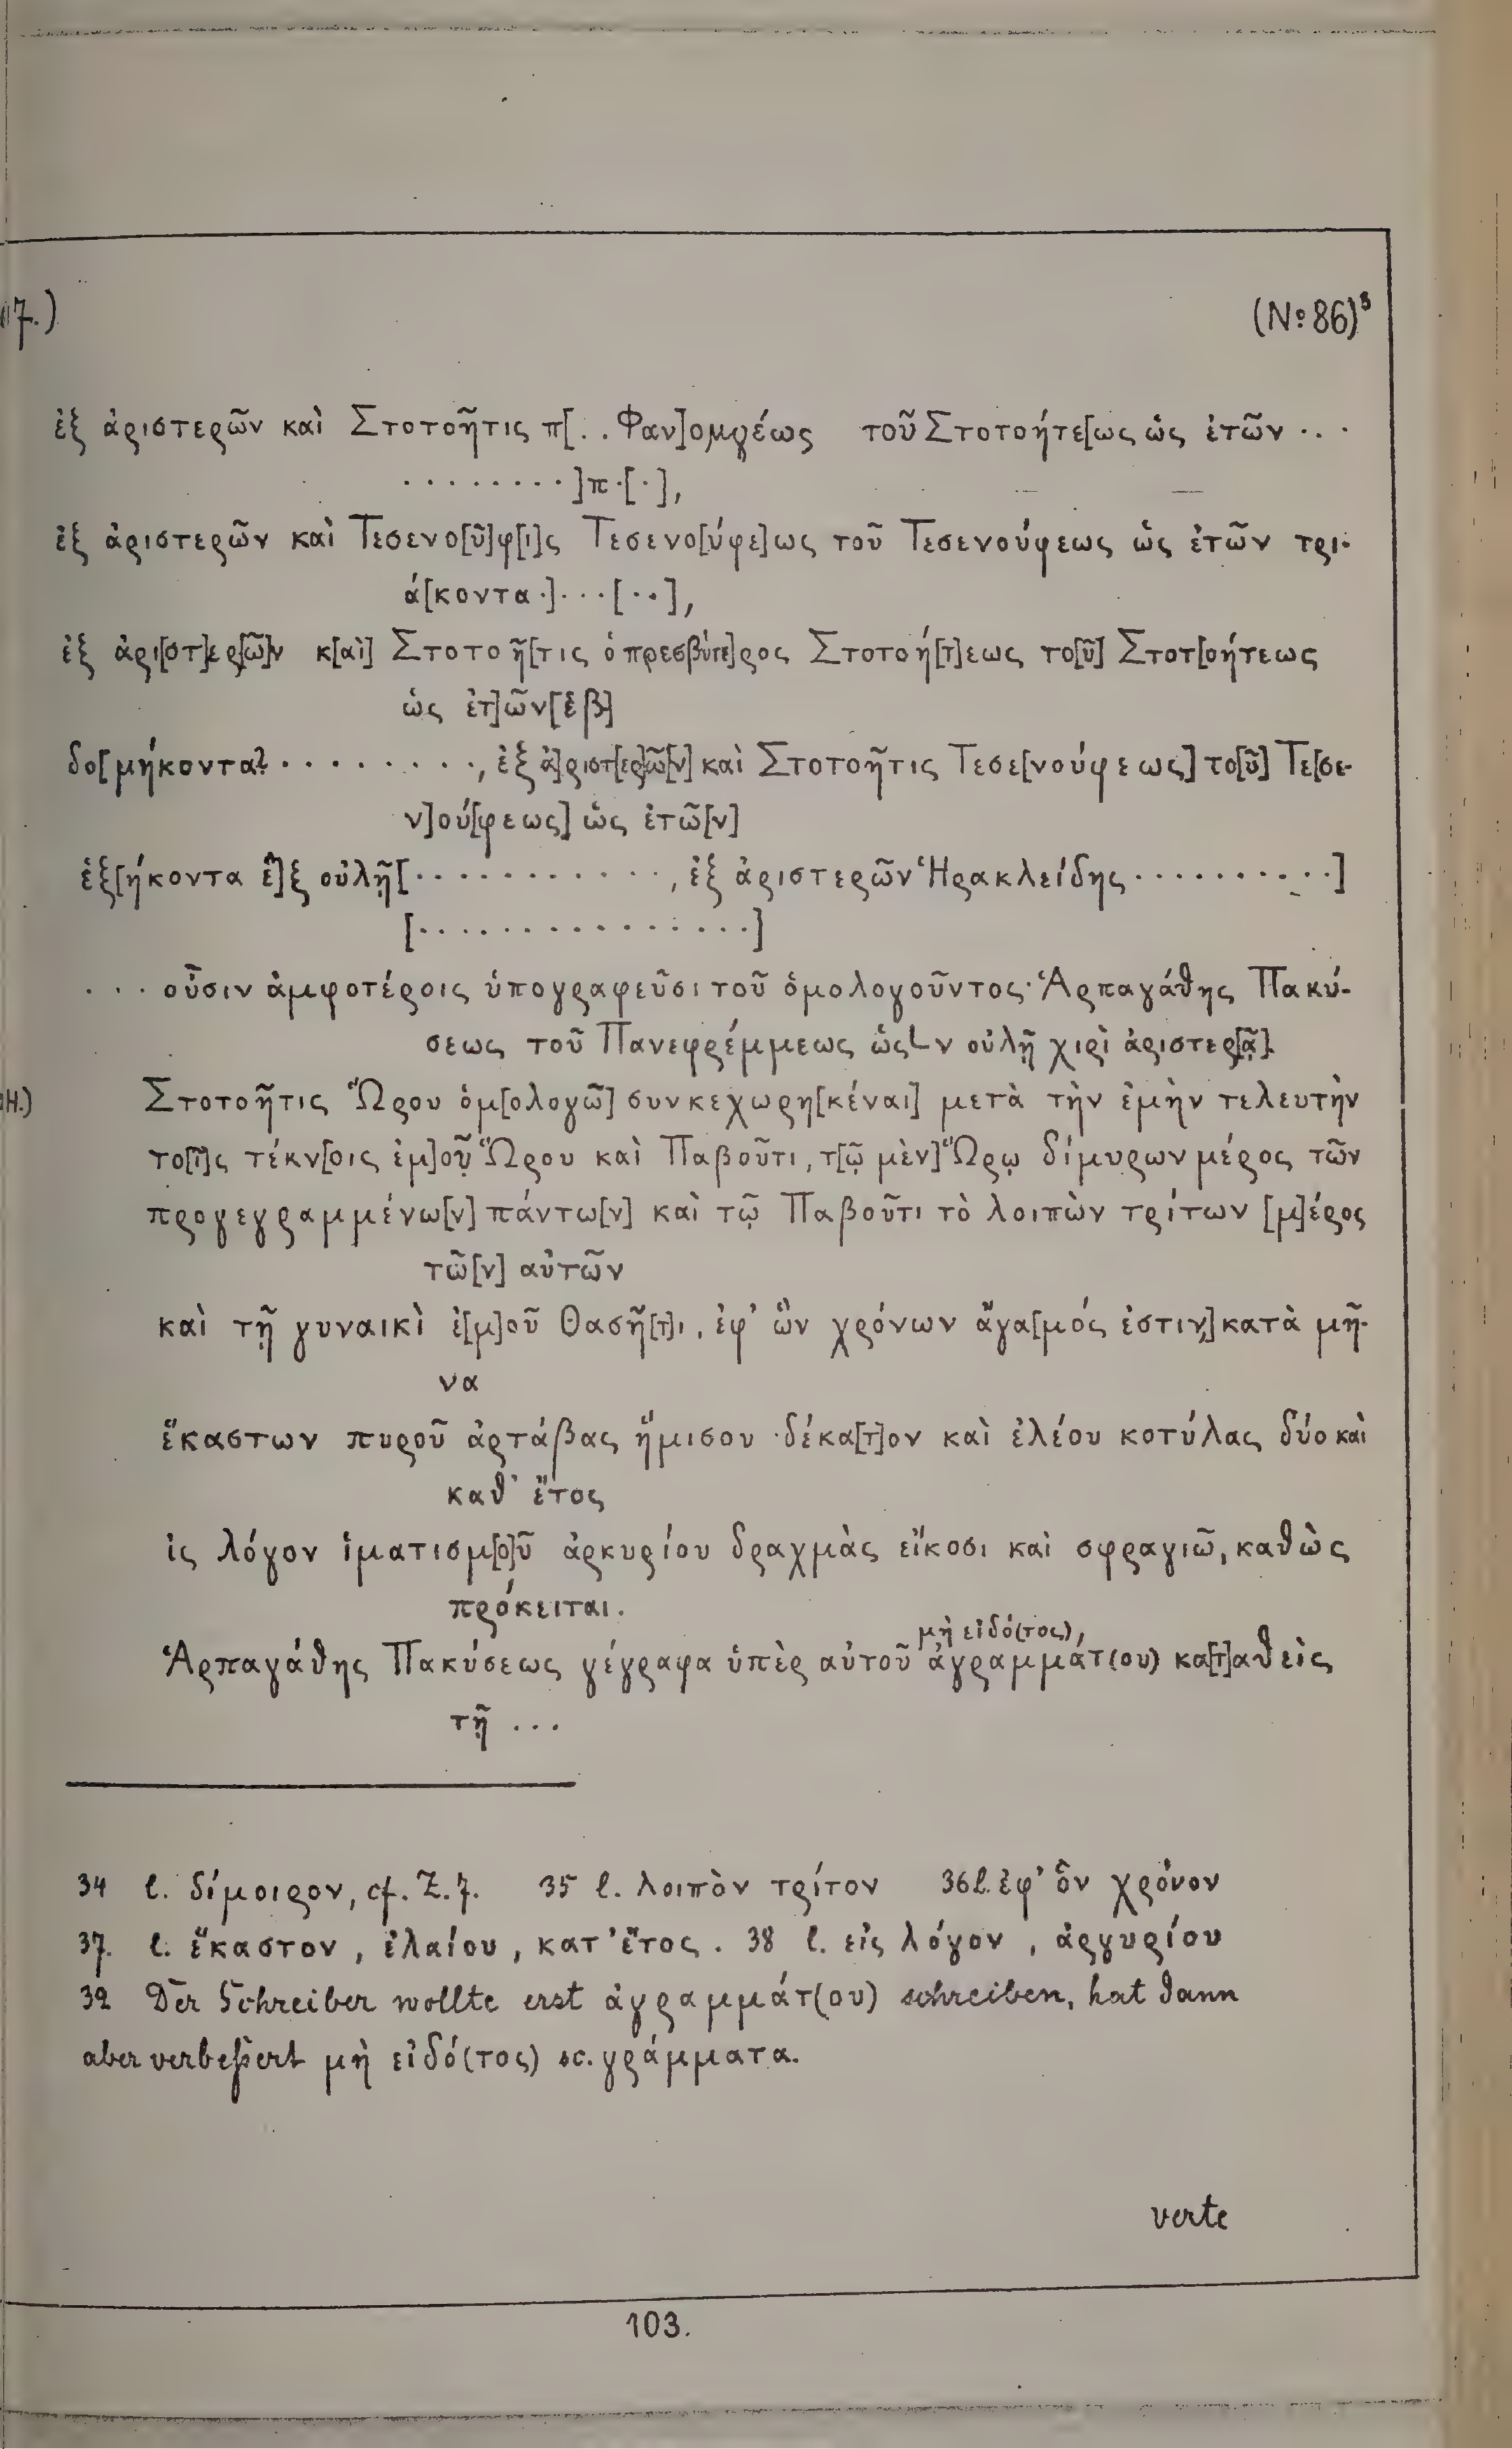 7.) (No 86)³
ἐξ ἀριστερῶν καὶ Στοτοῆτις π[. . Φαν]ομγέως τοῦ Στοτοήτε[ως ὡς ἐτῶν . . .
. . . . . . . . ]π·[·],
ἐξ ἀριστερῶν καὶ Τεσενο[ῦ]φ[ι]ς Τεσενο[ύφε]ως τοῦ Τεσενούφεως ὡς ἐτῶν τρι-
ά[κοντα ·]· · ·[· ·],
ἐξ ἀρι[στ]ερ[ῶ]ν κ[αὶ] Στοτοῆ[τις ὁ πρεσβύτε]ρος Στοτοή[τ]εως το[ῦ] Στοτ[οήτεως
ὡς ἐτ]ῶν [ἑβ]
δο[μήκοντα? · · · · · · · · ·, ἐξ ἀ]ριστ[ερ]ῶ[ν] καὶ Στοτοῆτις Τεσε[νούφεως] το[ῦ] Τε[σε-
ν]ού[φεως] ὡς ἐτῶ[ν]
ἑξ[ήκοντα ἓ]ξ οὐλῇ [· · · · · · · · · · · ·, ἐξ ἀριστερῶν Ἡρακλείδης · · · · · · · · · ·]
[· · · · · · · · · · · · · · · ·]
· · · οῦσιν ἀμφοτέροις ὑπογραφεῦσι τοῦ ὁμολογοῦντος· Ἁρπαγάθης Πακύ-
σεως τοῦ Πανεφρέμμεως ὡς L ν οὐλῇ χιρὶ ἀριστερ[ᾷ].
H.) Στοτοῆτις Ὥρου ὁμ[ολογῶ] συνκεχωρη[κέναι] μετὰ τὴν ἐμὴν τελευτὴν
το[ῖ]ς τέκν[οις ἐμ]οῦ Ὥρου καὶ Παβοῦτι, τ[ῷ μὲν] Ὥρῳ δίμυρων μέρος τῶν
προγεγραμμένω[ν] πάντω[ν] καὶ τῷ Παβοῦτι τὸ λοιπὼν τρίτων [μ]έρος
τῶ[ν] αὐτῶν
καὶ τῇ γυναικὶ ἐ[μ]οῦ Θασῆ[τ]ι, ἐφ' ὣν χρόνων ἄγα[μός ἐστιν,] κατὰ μῆ-
να
ἕκαστων πυροῦ ἀρτάβας ἥμισου δέκα[τ]ον καὶ ἐλέου κοτύλας δύο καὶ
καθ' ἔτος
ἰς λόγον ἱματισμ[ο]ῦ ἀρκυρίου δραχμὰς εἴκοσι καὶ σφραγιῶ, καθὼς
πρόκειται.
μὴ εἰδό(τος),
Ἁρπαγάθης Πακύσεως γέγραφα ὑπὲρ αὐτοῦ ἀγραμμάτ(ου) κα[τ]αθεὶς
τῇ ...
34 l. δίμοιρον, cf. Z. 7. 35 l. λοιπὸν τρίτον 36 l. ἐφ' ὃν χρόνον
37. l. ἕκαστον, ἐλαίου, κατ' ἔτος. 38 l. εἰς λόγον, ἀργυρίου
39 Der Schreiber wollte erst ἀγραμμάτ(ου) schreiben, hat dann
aber verbeßert μὴ εἰδό(τος) sc. γράμματα.
verte
103.